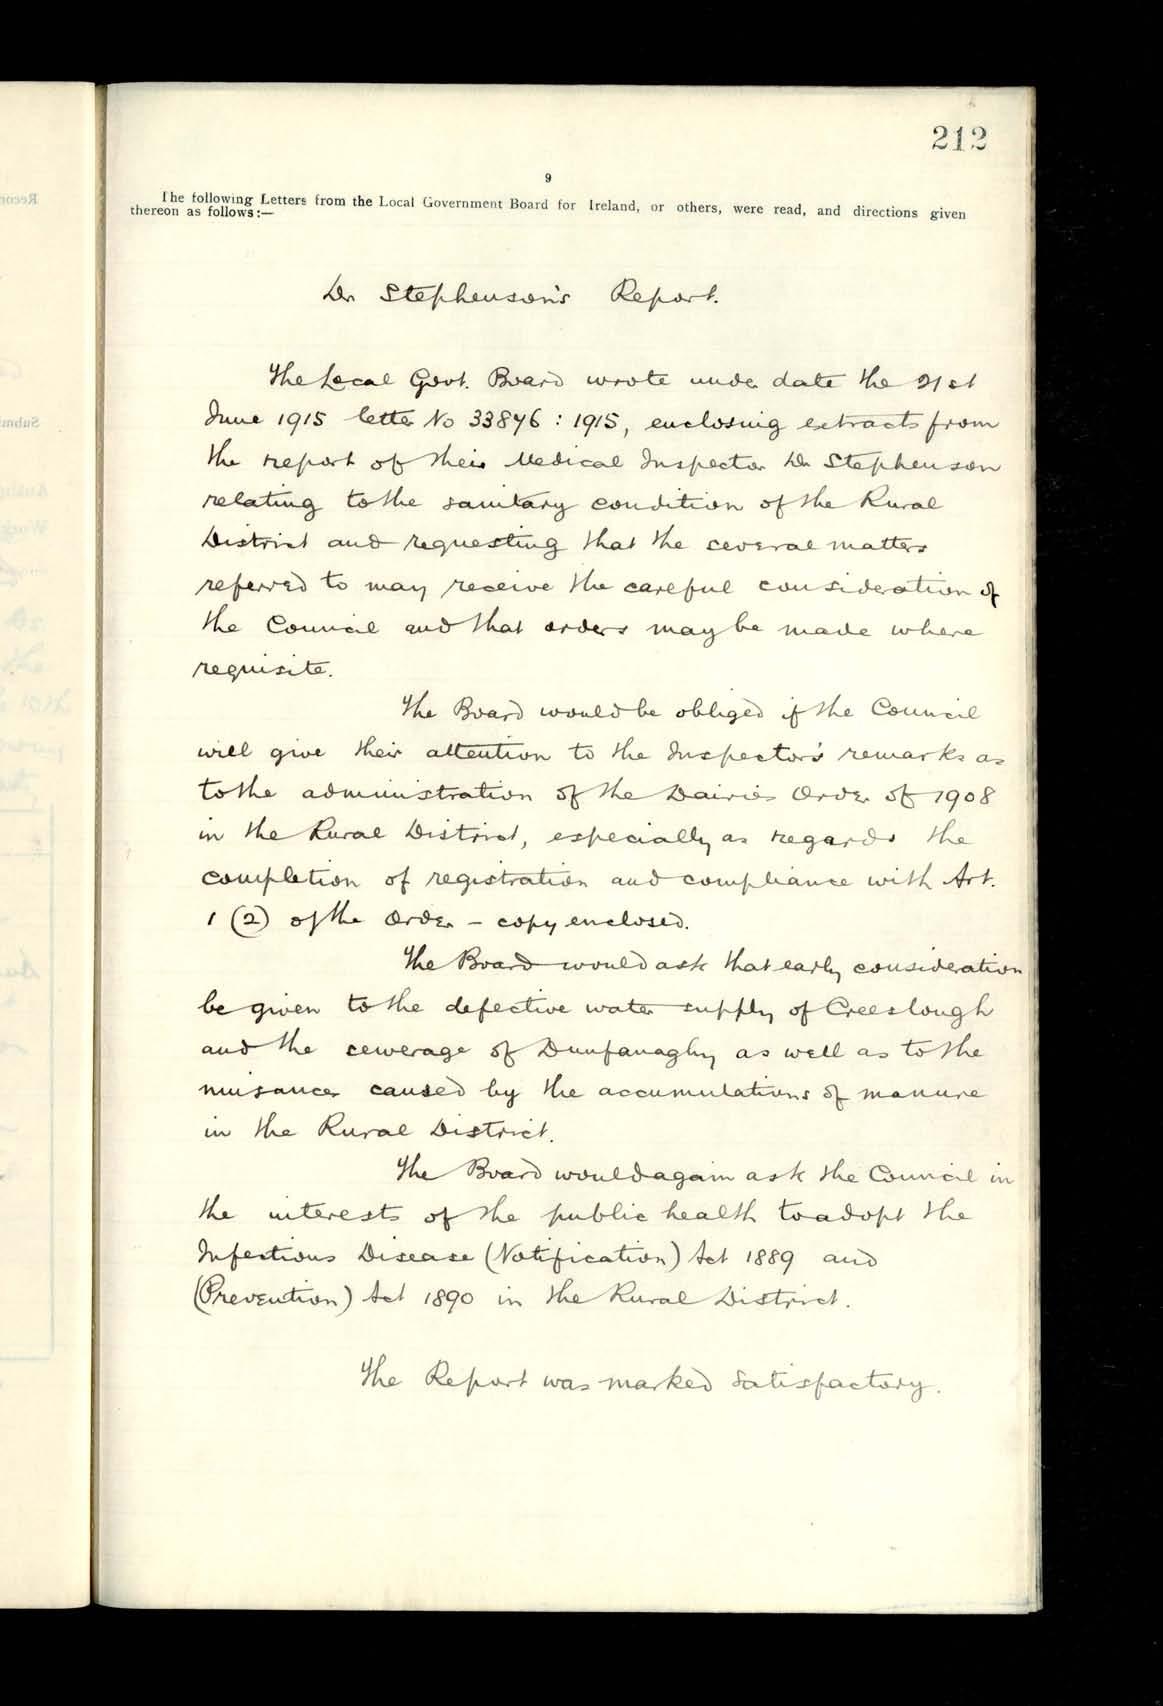 212
9
The following Letters from the Local Government Board for Ireland, or others, were read, and directions given
thereon as follows:—
Dr Stephenson's Report.
The Local Govt. Board wrote under date the 21st
June 1915 letter No 33876 : 1915, enclosing extracts from
the report of their Medical Inspector Dr Stephenson
relating to the sanitary condition of the Rural
District and requesting that the several matters
referred to may receive the careful consideration of
the Council and that orders may be made where
requisite.
The Board would be obliged if the Council
will give their attention to the Inspector's remarks as
to the administration of the Dairies Order of 1908
in the Rural District, especially as regards the
completion of registration and compliance with Art.
1 (2) of the Order – copy enclosed.
The Board would ask that early consideration
be given to the defective water supply of Creeslough
and the sewerage of Dunfanaghy as well as to the
nuisances caused by the accumulations of manure
in the Rural District.
The Board would again ask the Council in
the interests of the public health to adopt the
Infectious Disease (Notification) Act 1889 and
(Prevention) Act 1890 in the Rural District.
The Report was marked satisfactory.